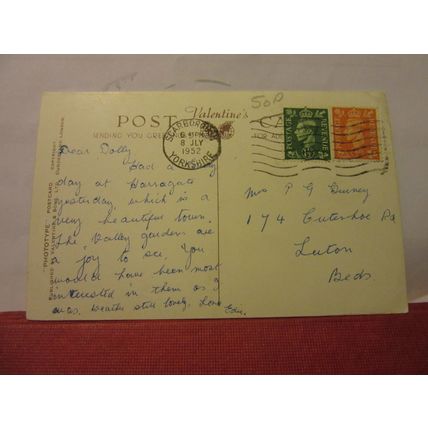 50p
POST Valentine's CA
SENDING YOU GREE
FOR AD
SCARBOROUGH
6 PM
8 JLY
1952
YORKSHIRE
POSTAGE REVENUE
Dear Dolly
Had a
day at Harrogate
yesterday, which is a
very beautiful town.
The Valley gardens are
a joy to see, You
would have been most
interested in them as I
was. Weather still lovely, Love
Edie.
Mrs P G
174 Rd
Luton
Beds
"PHOTOTYPE" POSTCARD
COPYRIGHT
PUBLISHED BY VALENTINE & SONS LTD. DUNDEE AND LONDON.